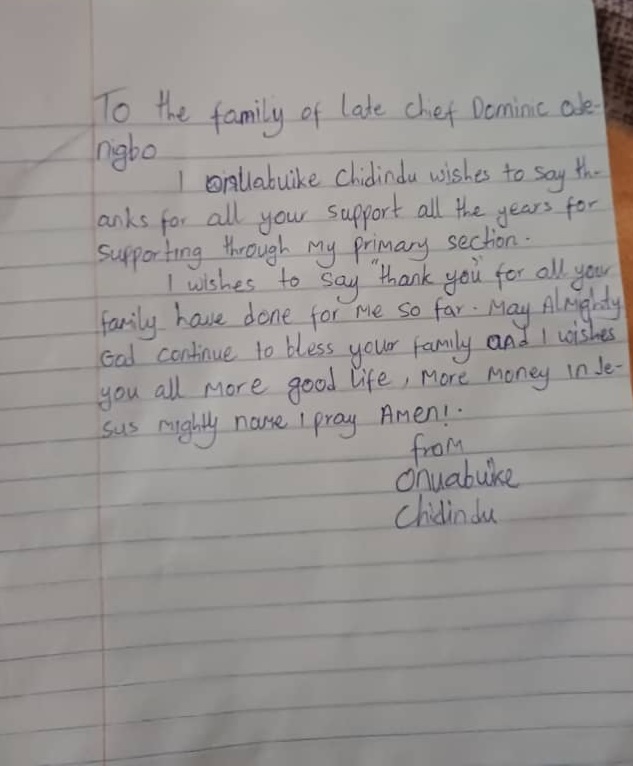 To the family of late chief Dominic ode-
nigbo
I Onuabuike Chidindu wishes to say th-
anks for all your support all the years for
supporting through my primary section.
I wishes to say "thank you" for all your
family have done for me so far. May Almighty
God continue to bless your family and I wishes
you all more good life, more money in Je-
sus mighty name I pray Amen!.
from
Onuabuike
Chidindu